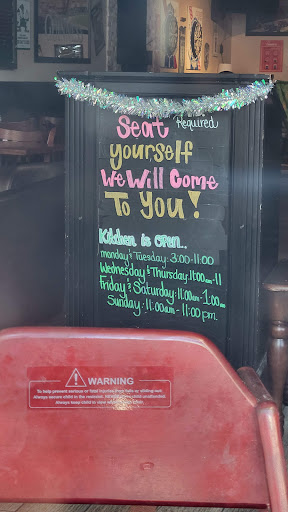 Seat Required
yourself
We Will Come
To You!
Kitchen is open..
monday & Tuesday: 3:00-11:00
Wednesday & Thursday: 11:00am-11
Friday & Saturday: 11:00am-1:00am
Sunday: 11:00am-11:00pm.
WARNING
To help prevent serious or fatal injuries from falls or sliding out:
Always secure child in the restraint. Never leave child unattended.
Always keep child in view